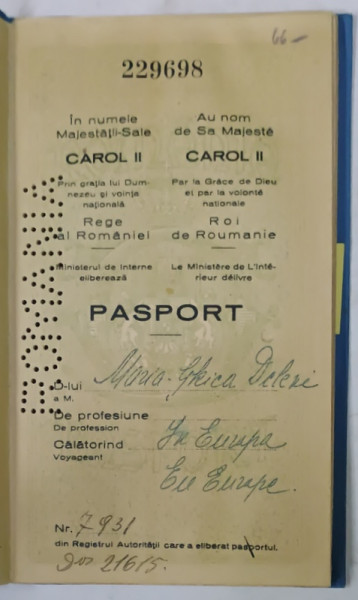 66-
229698
În numele
Majestății-Sale
CAROL II
Prin grația lui Dum-
nezeu și voința
națională
Rege
al României
Ministerul de Interne
eliberează
Au nom
de Sa Majesté
CAROL II
Par la Grâce de Dieu
et par la volonté
nationale
Roi
de Roumanie
Le Ministère de L'Inté-
rieur délivre
ROMANIA
PASPORT
D-lui Maria Ghica Deleni
a M.
De profesiune
De profession
Călătorind In Europa
Voyageant En Europe.
Nr. 7931
din Registrul Autorității care a eliberat pasportul.
Dos 21615.